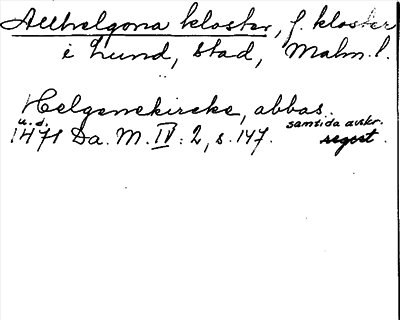 Allhelgona kloster, f. kloster
i Lund, stad, Malm. l.
Helgenekircke, abbas.
u.d. samtida avskr.
1471 Da. M. IV: 2, s. 147. regest.